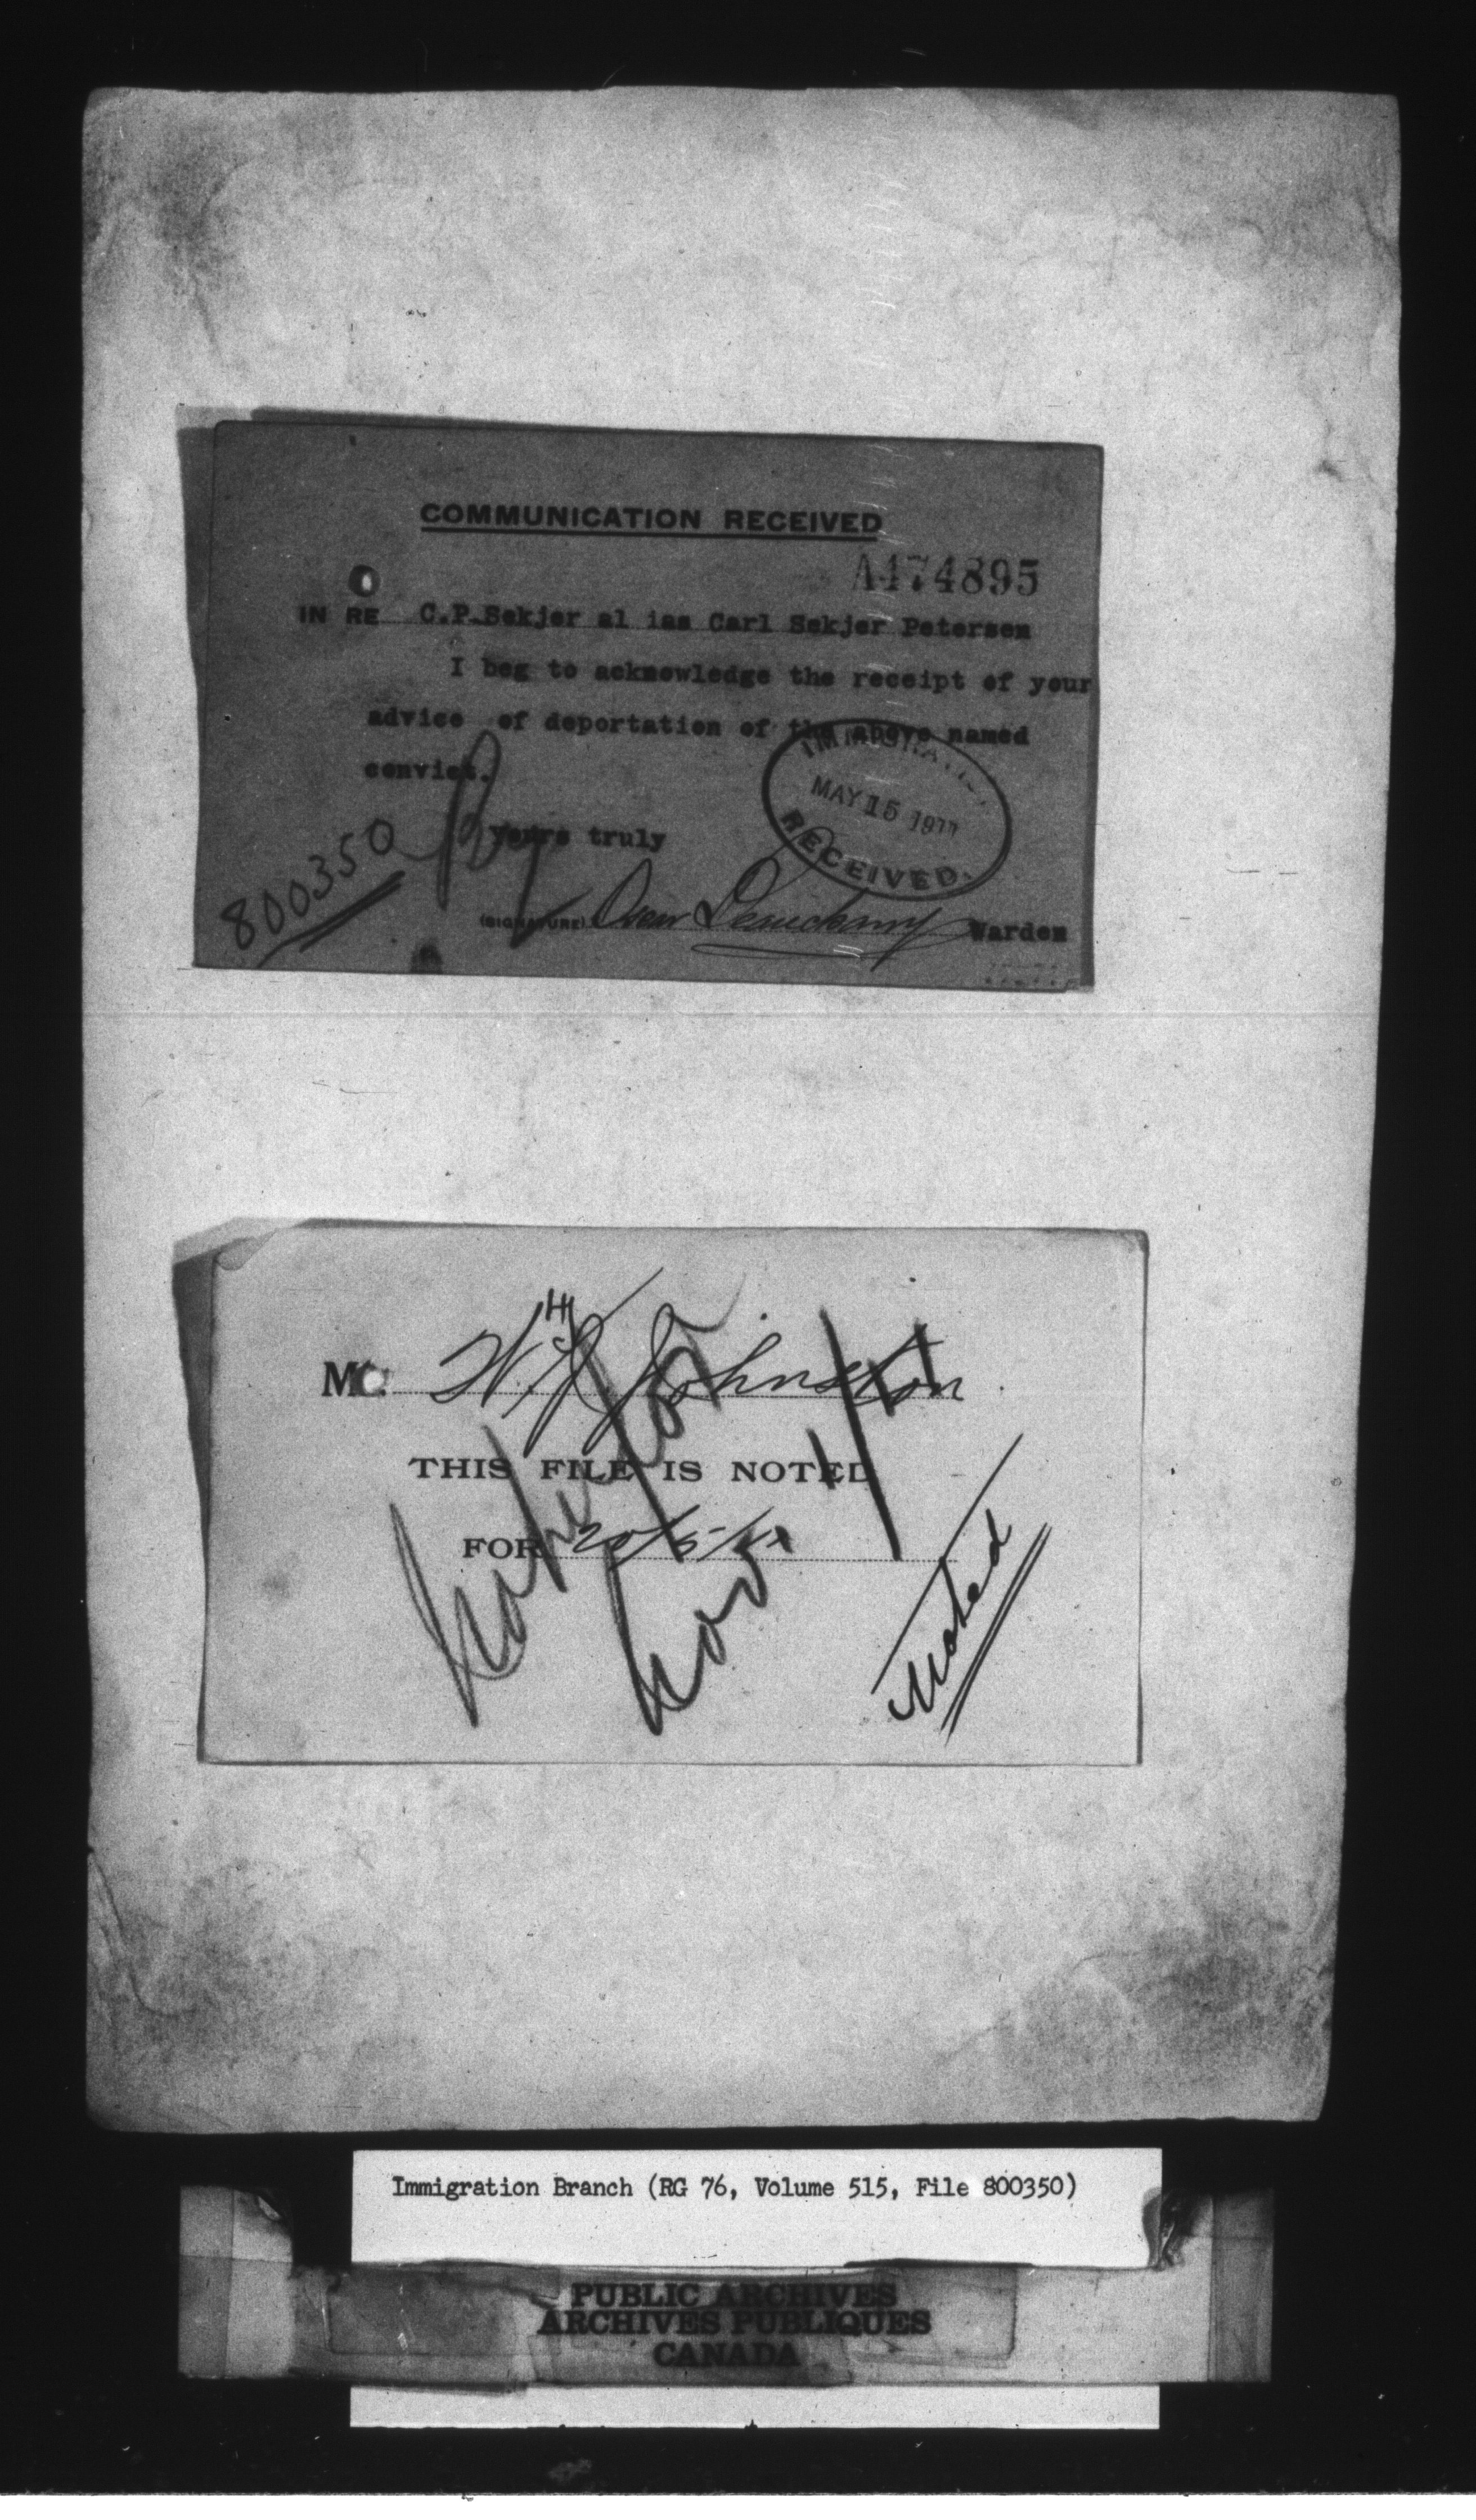 COMMUNICATION RECEIVED
A474895
IN RE C.P.Sekjer al ias Carl Sekjer Petersen
I beg to acknowledge the receipt of your
advice of deportation of the above named
convict.
IMMIGRATION
MAY 15 1911
RECEIVED.
800350
yours truly
(SIGNATURE) Oscar Beauchamp Warden
Mr. W. J. Johnston
THIS FILE IS NOTED
FOR 20/5/11
Nov.
Noted
Immigration Branch (RG 76, Volume 515, File 800350)
PUBLIC ARCHIVES
ARCHIVES PUBLIQUES
CANADA